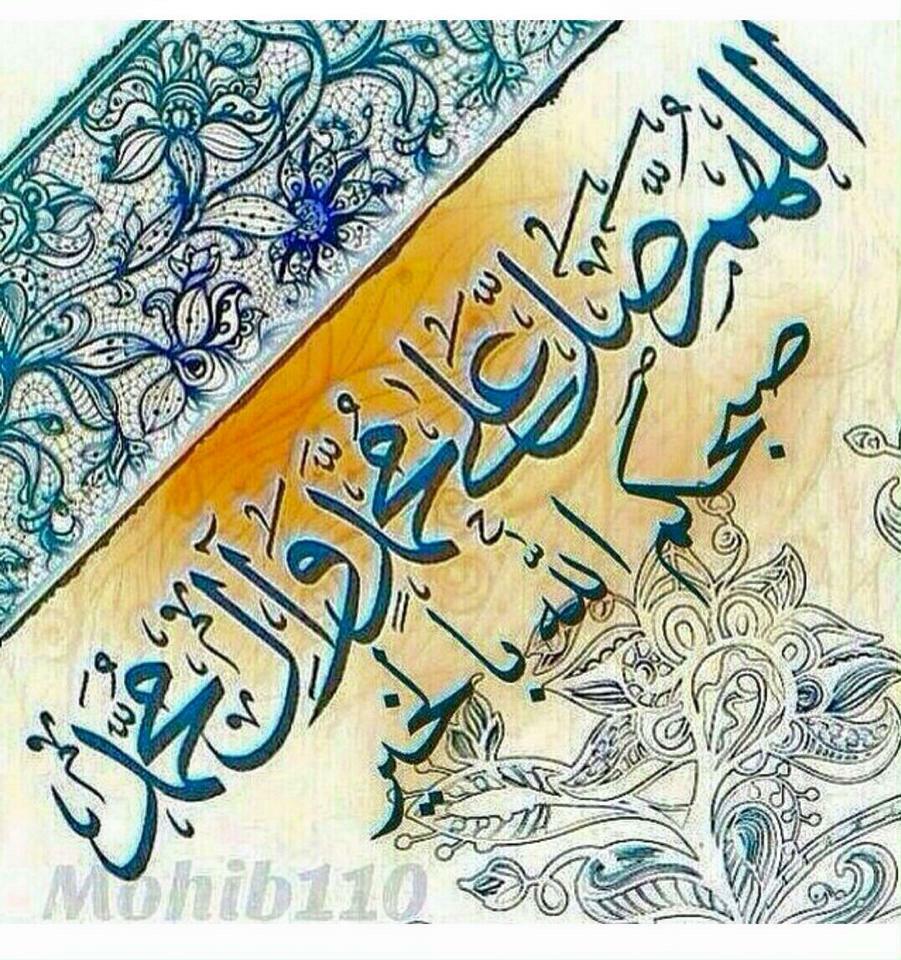 اللهم صل علی محمد وآل محمد
صبحكم الله بالخير
Mohib110